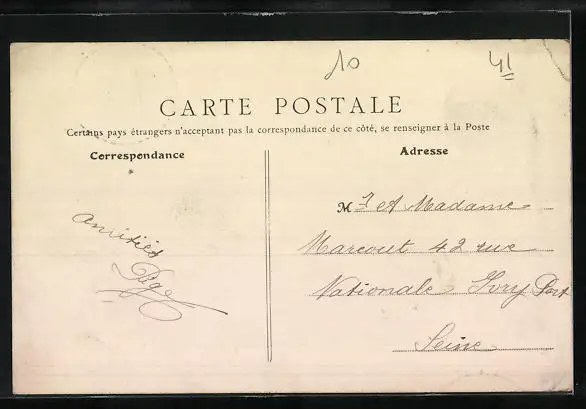 10
41
CARTE POSTALE
Certains pays étrangers n'acceptant pas la correspondance de ce côté, se renseigner à la Poste
Correspondance
Adresse
Mr et Madame
Marcout 42 rue
Nationale Ivry Port
Seine
amitiés